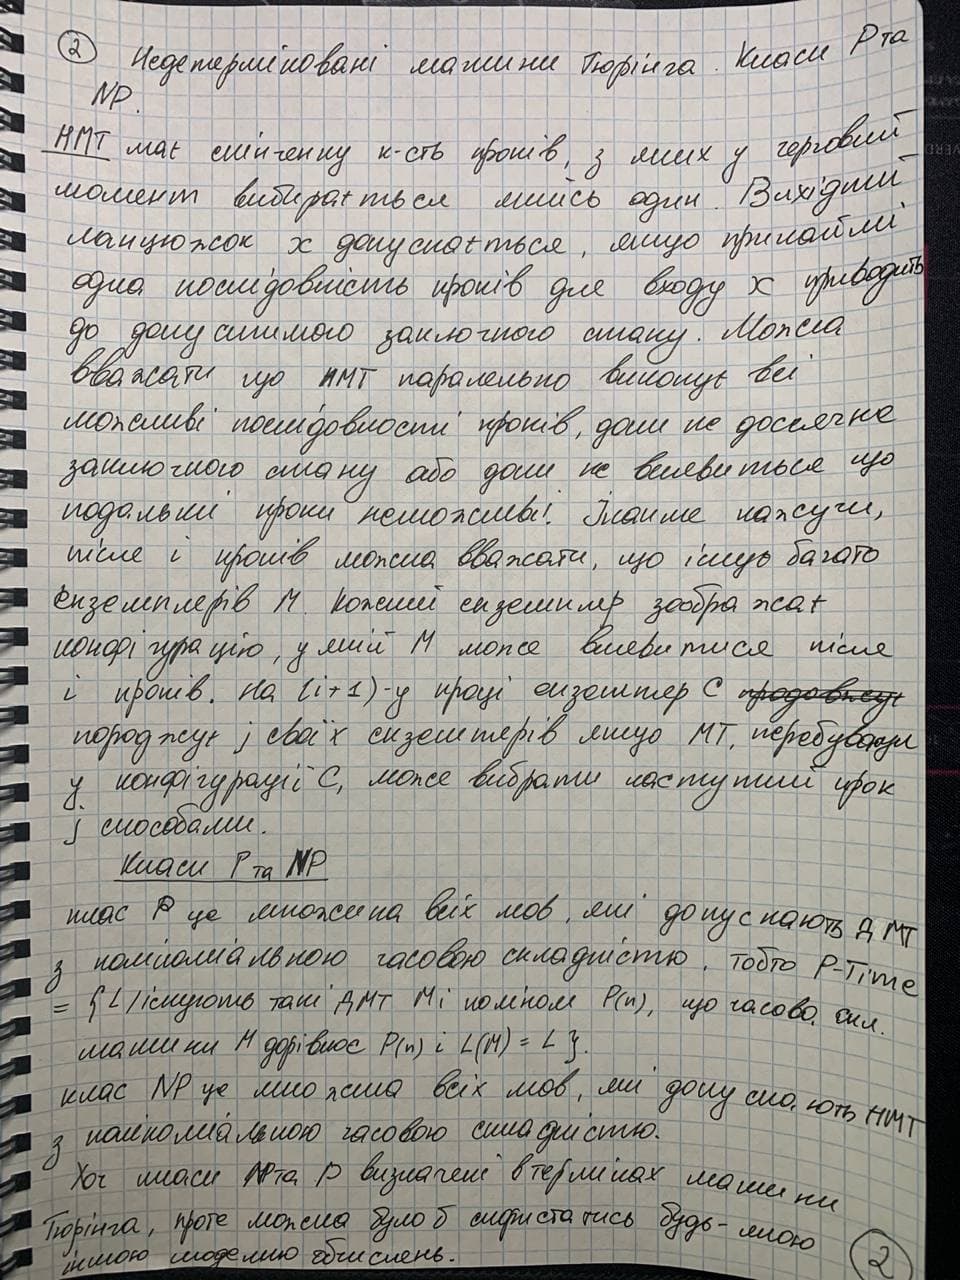 2 Недетерміновані машини Тюрінга. Класи P та
NP.
НМТ має скінченну к-сть кроків, з яких у черговий
момент вибирається якийсь один. Вихідний
ланцюжок x допускається, якщо принаймні
одна послідовність кроків для входу x приводить
до допустимого заключного стану. Можна
вважати що НМТ паралельно виконує всі
можливі послідовності кроків, доки не досягне
заключного стану або доки не виявиться що
подальші кроки неможливі. Інакше кажучи,
після i кроків можна вважати, що існує багато
екземплярів M. Кожний екземпляр зображає
конфігурацію, у якій M може виявитися після
i кроків. На (i+1)-у кроці екземпляр C
породжує j своїх екземплярів якщо МТ, перебуваючи
у конфігурації C, може вибрати наступний крок
j способами.
Класи P та NP
клас P це множина всіх мов, які допускають ДМТ
з поліноміальною часовою складністю. Тобто P-Time
= {L/існують такі ДМТ M і поліном P(n), що часова скл.
машини M дорівнює P(n) і L(M) = L}.
клас NP це множина всіх мов, які допускають НМТ
з поліноміальною часовою складністю.
Хоч класи NP та P визначені в термінах машини
Тюрінга, проте можна було б скористатись будь-якою
іншою моделлю обчислень.
2